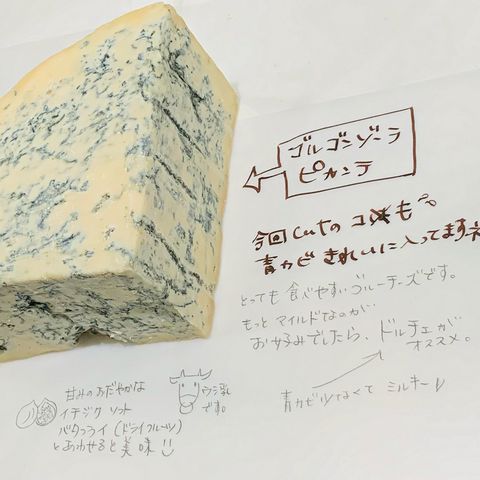 ゴルゴンゾーラ
ピカンテ
今回cutのコも
青カビきれいに入ってますネ
とっても食べやすいブルーチーズです。
もっとマイルドなのが
お好みでしたら、ドルチェが
オススメ。
青カビ少なくてミルキー
甘みのおだやかな
イチジク ソフト
(ドライフルーツ)
とあわせると美味
ウシ乳
です。